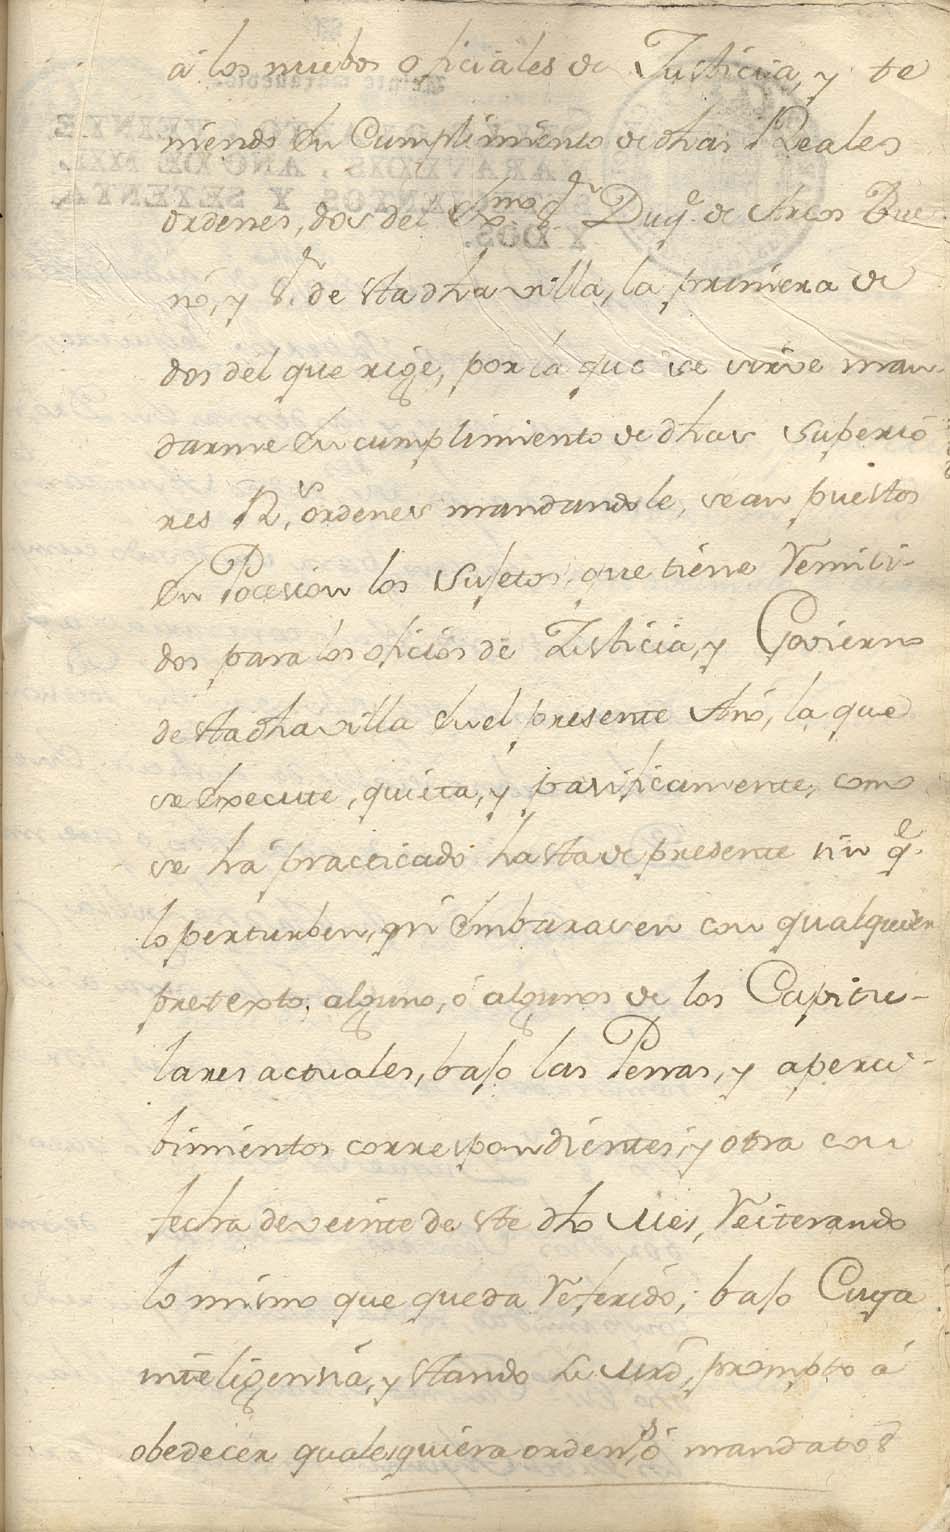 á los nuebos oficiales de Justicia, y te
niendo en Cumplimiento de dhas Reales
ordenes, dos del Exmo. Sr. Duq.e de Arcos Bue
no, y Sr. de sta dha villa, la primera de
dos del que rige, por la que se sirve man-
darme en cumplimiento de dhas superio
res Rs. ordenes mandandole, sean puestos
en Pocesion los sujetos, que tiene remiti-
dos para los oficios de Justicia, y Govierno
de sta dha villa en el presente Año, la que
se execute, quieta, y pasificamente, como
se há practicado hasta de presente sin q.e
lo perturben, ni embarasen con qualquier
pretexto, alguno, ó algunos de los Capitu-
lares actuales, bajo las Penas, y aperci-
bimientos correspondientes, y otra con
fecha de veinte de ste dho Mes, reiterando
lo mismo que queda referido; bajo Cuya
inteligensia, y stando su Mrd, prompto á
obedecer qualesquiera orden.s, ó mandatos